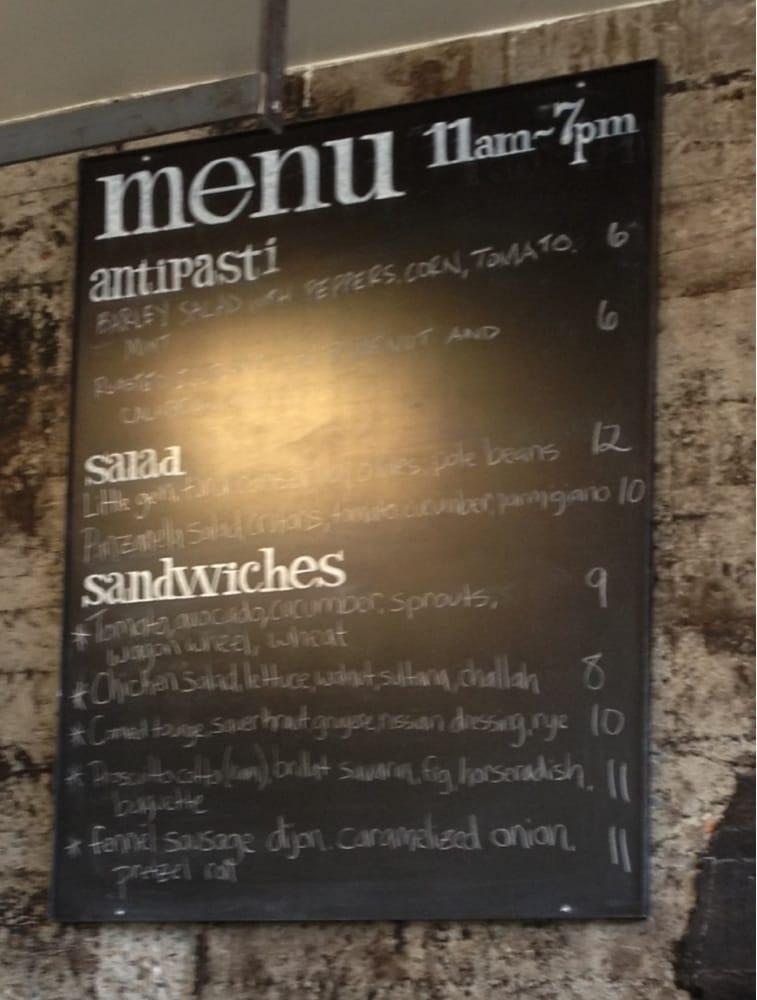 menu 11am~7pm
antipasti
BARLEY SALAD WITH PEPPERS, CORN, TOMATO, 6
MINT
ROASTED AND 6
salad
Little gem, tuna olives, pole beans 12
Panzanella salad, croutons, tomato, cucumber, parmigiano 10
sandwiches
* Tomato, avocado, cucumber, sprouts, 9
wagon wheel, wheat
* Chicken salad, lettuce, walnut, sultana, challah 8
* Corned tounge, sauerkraut, gruyere, russian dressing, rye 10
* Prosciutto cotto (ham) brillat savarin, fig, horseradish, 11
baguette
* fennel sausage dijon, caramelized onion, 11
pretzel roll